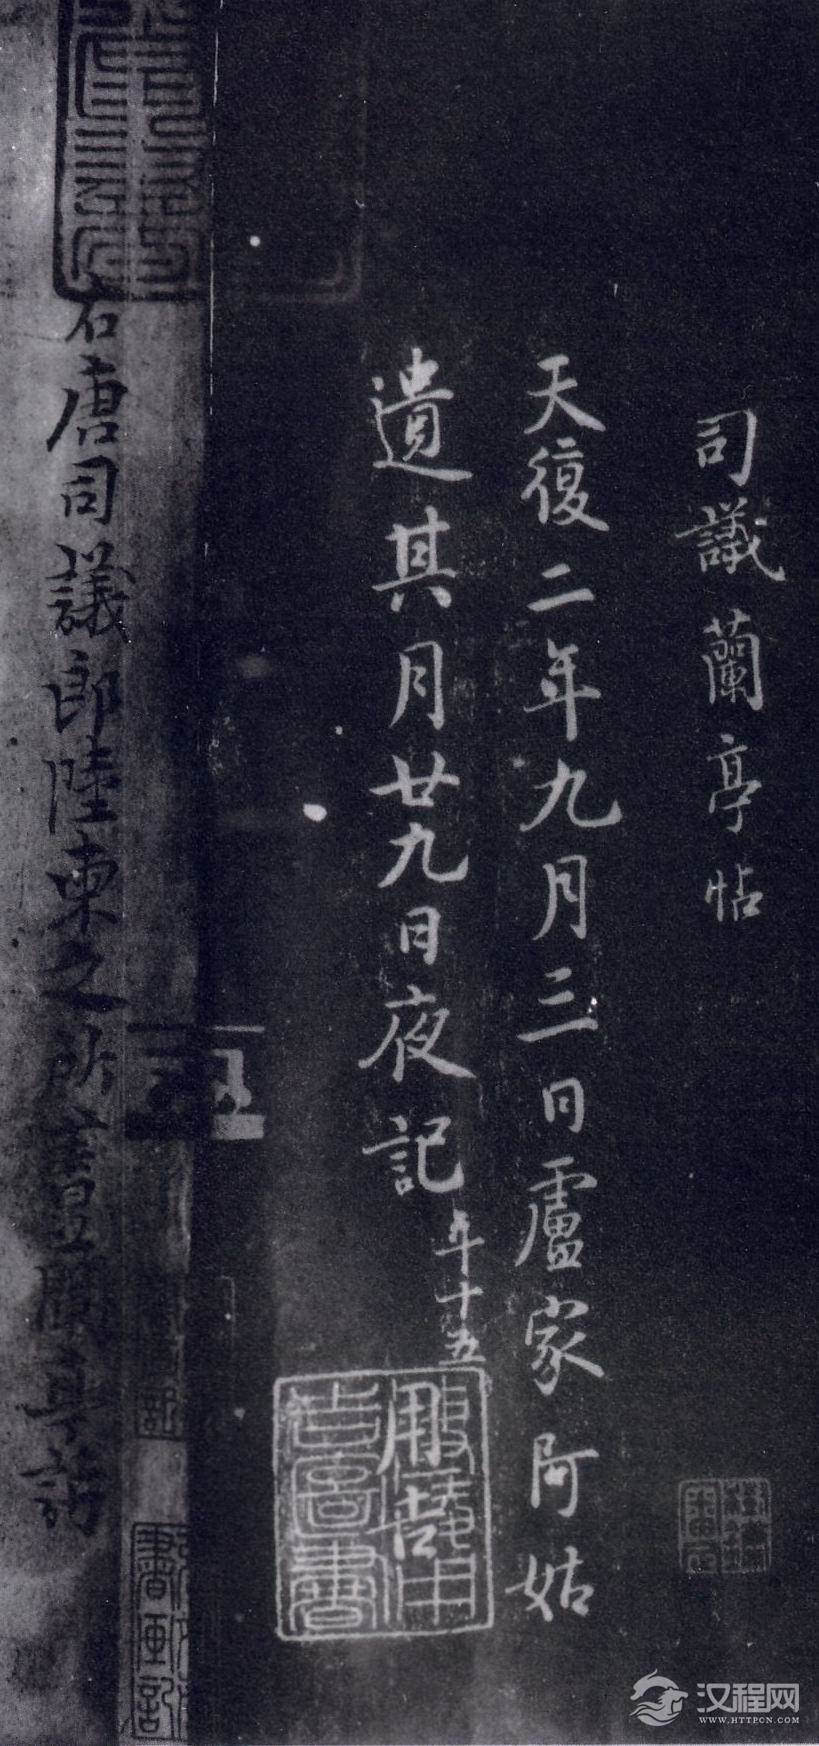 司議蘭亭帖
天復二年九月三日盧家阿姑
遺其月廿九日夜記
年十五
用吉
右唐司議郎陸柬之所書蘭亭詩
書画記
汉程网
WWW.HTTPCN.COM